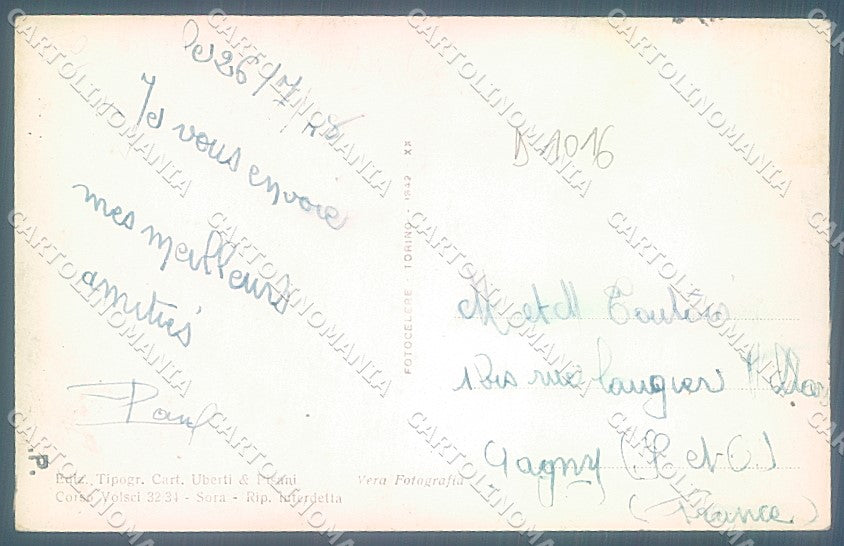 Le 26/7/48
Je vous envoie
mes meilleurs
amitiés
Paul
D 1016
FOTOCELERE - TORINO - 1942 XX
M et M
1 bis rue Laugier
Gagny (S et O)
(France)
P.
Ediz. Tipogr. Cart. Uberti & Pisani
Corso Volsci 32-34 - Sora - Rip. interdetta
Vera Fotografia
CARTOLINOMANIA